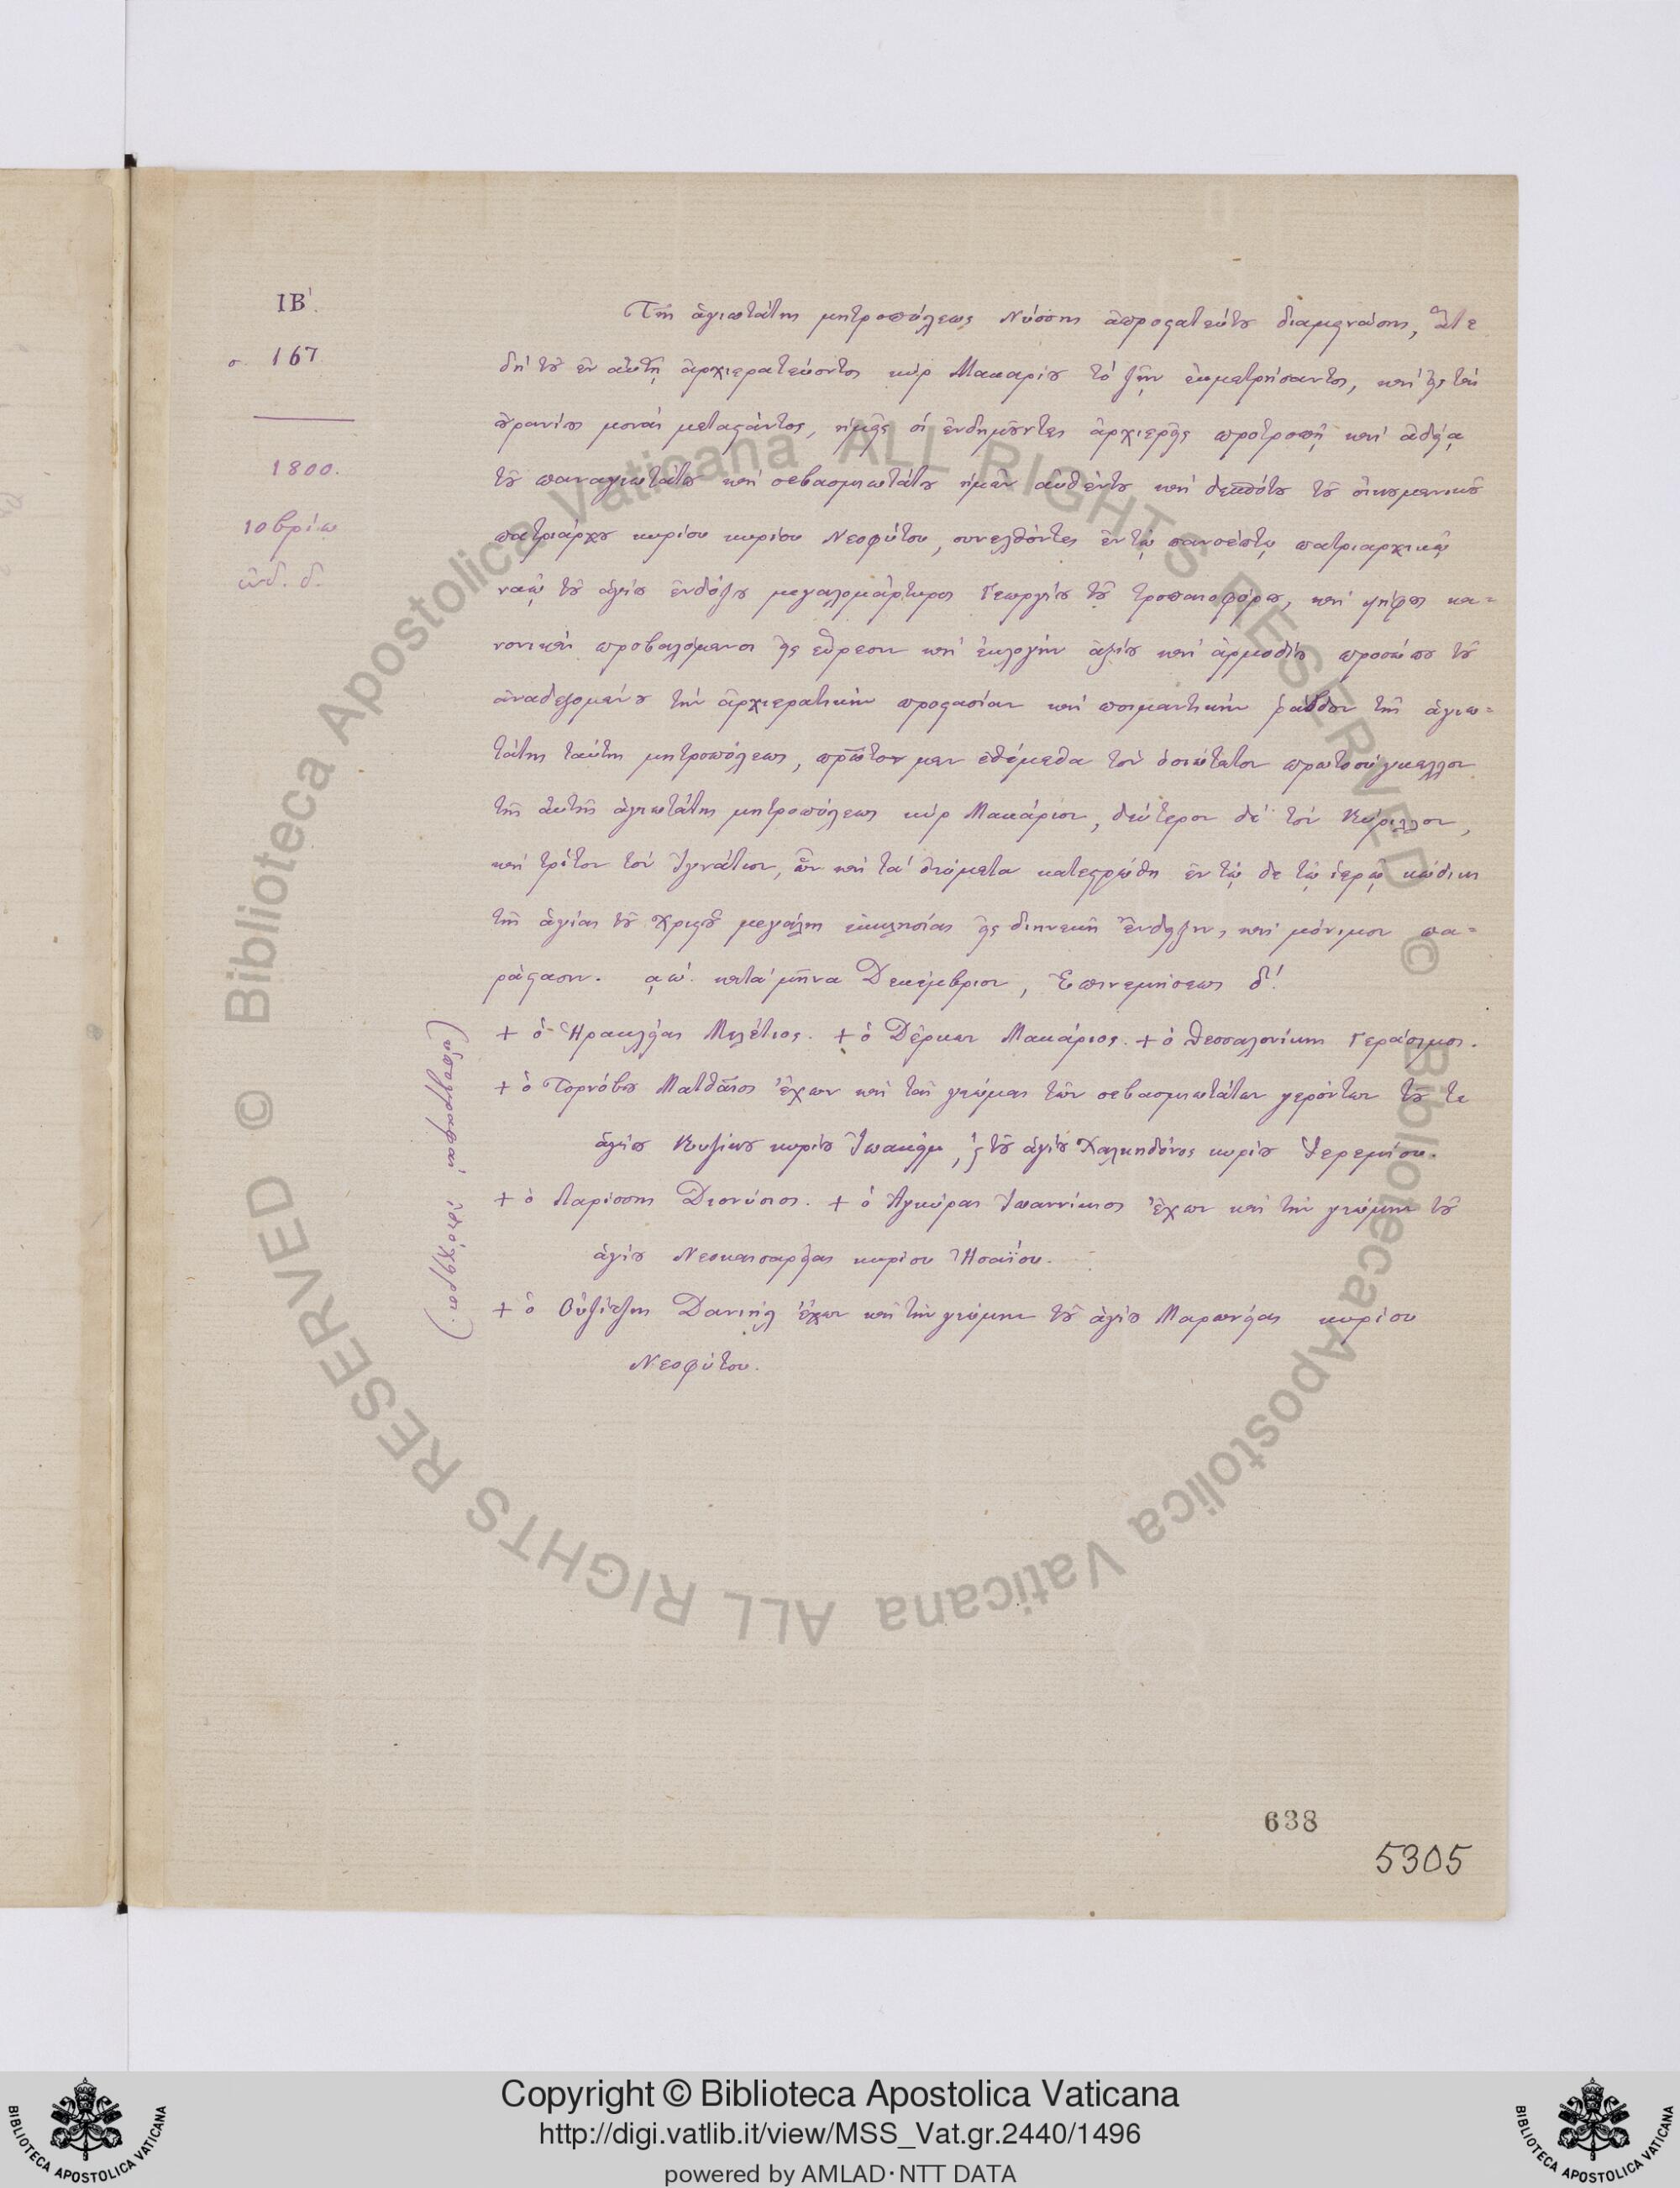 ΙΒ΄.
σ. 167
1800.
10βρίω
ἰνδ. δ.
Τῆς ἁγιωτάτης μητροπόλεως Νύσσης ἀπροστατεύτου διαμεινάσης, ἅτε
δὴ τοῦ ἐν αὐτῇ ἀρχιερατεύοντος κὺρ Μακαρίου τὸ ζῆν ἐκμετρήσαντος, καὶ εἰς τὰς
οὐρανίους μονὰς μεταστάντος, ἡμεῖς οἱ ἐνδημοῦντες ἀρχιερεῖς προτροπῇ καὶ ἀδείᾳ
τοῦ παναγιωτάτου καὶ σεβασμιωτάτου ἡμῶν αὐθέντου καὶ δεσπότου τοῦ οἰκουμενικοῦ
πατριάρχου κυρίου κυρίου Νεοφύτου, συνελθόντες ἐν τῷ πανσέπτῳ πατριαρχικῷ
ναῷ τοῦ ἁγίου ἐνδόξου μεγαλομάρτυρος Γεωργίου τοῦ τροπαιοφόρου, καὶ ψήφους κα=
νονικὰς προβαλόμενοι εἰς εὕρεσιν καὶ ἐκλογὴν ἀξίου καὶ ἁρμοδίου προσώπου τοῦ
ἀναδεξομένου τὴν ἀρχιερατικὴν προστασίαν καὶ ποιμαντικὴν ράβδον τῆς ἁγιω=
τάτης ταύτης μητροπόλεως, πρῶτον μεν εθέμεθα τὸν ὁσιώτατον πρωτοσύγκελλον
τῆς αὐτῆς ἁγιωτάτης μητροπόλεως κὺρ Μακάριον, δεύτερον δὲ τὸν Κύριλλον,
καὶ τρίτον τὸν Ἰγνάτιον, ὧν καὶ τὰ ὀνόματα κατεστρώθη ἐν τῷ δε τῷ ἱερῷ κώδικι
τῆς ἁγίας τοῦ Χριστοῦ μεγάλης ἐκκλησίας εἰς διηνεκῆ ἔνδειξιν, καὶ μόνιμον πα=
ράστασιν. αω΄. κατὰ μῆνα Δεκέμβριον, Ἐπινεμήσεως δ΄.
(ὑπογραφαὶ ἰδιόχειροι.)
+ ὁ Ἡρακλείας Μελέτιος. + ὁ Δέρκων Μακάριος. + ὁ Θεσσαλονίκης Γεράσιμος.
+ ὁ Τορνόβου Ματθαῖος ἔχων καὶ τὰς γνώμας τῶν σεβασμιωτάτων γερόντων τοῦ τε
ἁγίου Κυζίκου κυρίου Ἰωακείμ, ϗ τοῦ ἁγίου Χαλκηδόνος κυρίου Ἱερεμίου.
+ ὁ Λαρίσσης Διονύσιος. + ὁ Ἀγκύρας Ἰωαννίκιος ἔχων καὶ τὴν γνώμην τοῦ
ἁγίου Νεοκαισαρείας κυρίου Ἡσαΐου.
+ ὁ Οὐζίτζης Δανιὴλ ἔχων καὶ τὴν γνώμην τοῦ ἁγίου Μαρωνείας κυρίου
Νεοφύτου.
638
5305
© Biblioteca Apostolica Vaticana ALL RIGHTS RESERVED © Biblioteca Apostolica Vaticana ALL RIGHTS RESERVED
Copyright © Biblioteca Apostolica Vaticana
http://digi.vatlib.it/view/MSS_Vat.gr.2440/1496
powered by AMLAD·NTT DATA
BIBLIOTECA APOSTOLICA VATICANA
BIBLIOTECA APOSTOLICA VATICANA